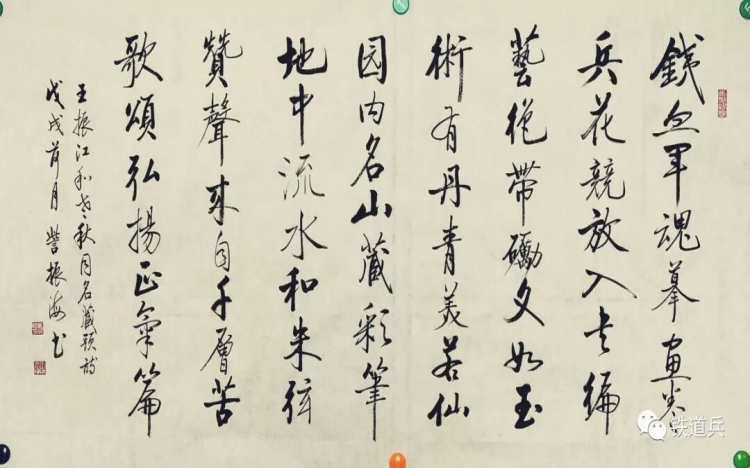 鐵血軍魂摹畫卷
兵花競放入專編
藝絕帶礪文如玉
術有丹青美若仙
園内名山藏彩筆
地中流水和朱弦
贊聲來自千層苦
歌頌弘揚正氣篇
王振江和老秋同名藏頭詩
戊戌前月 訾振海书
铁道兵